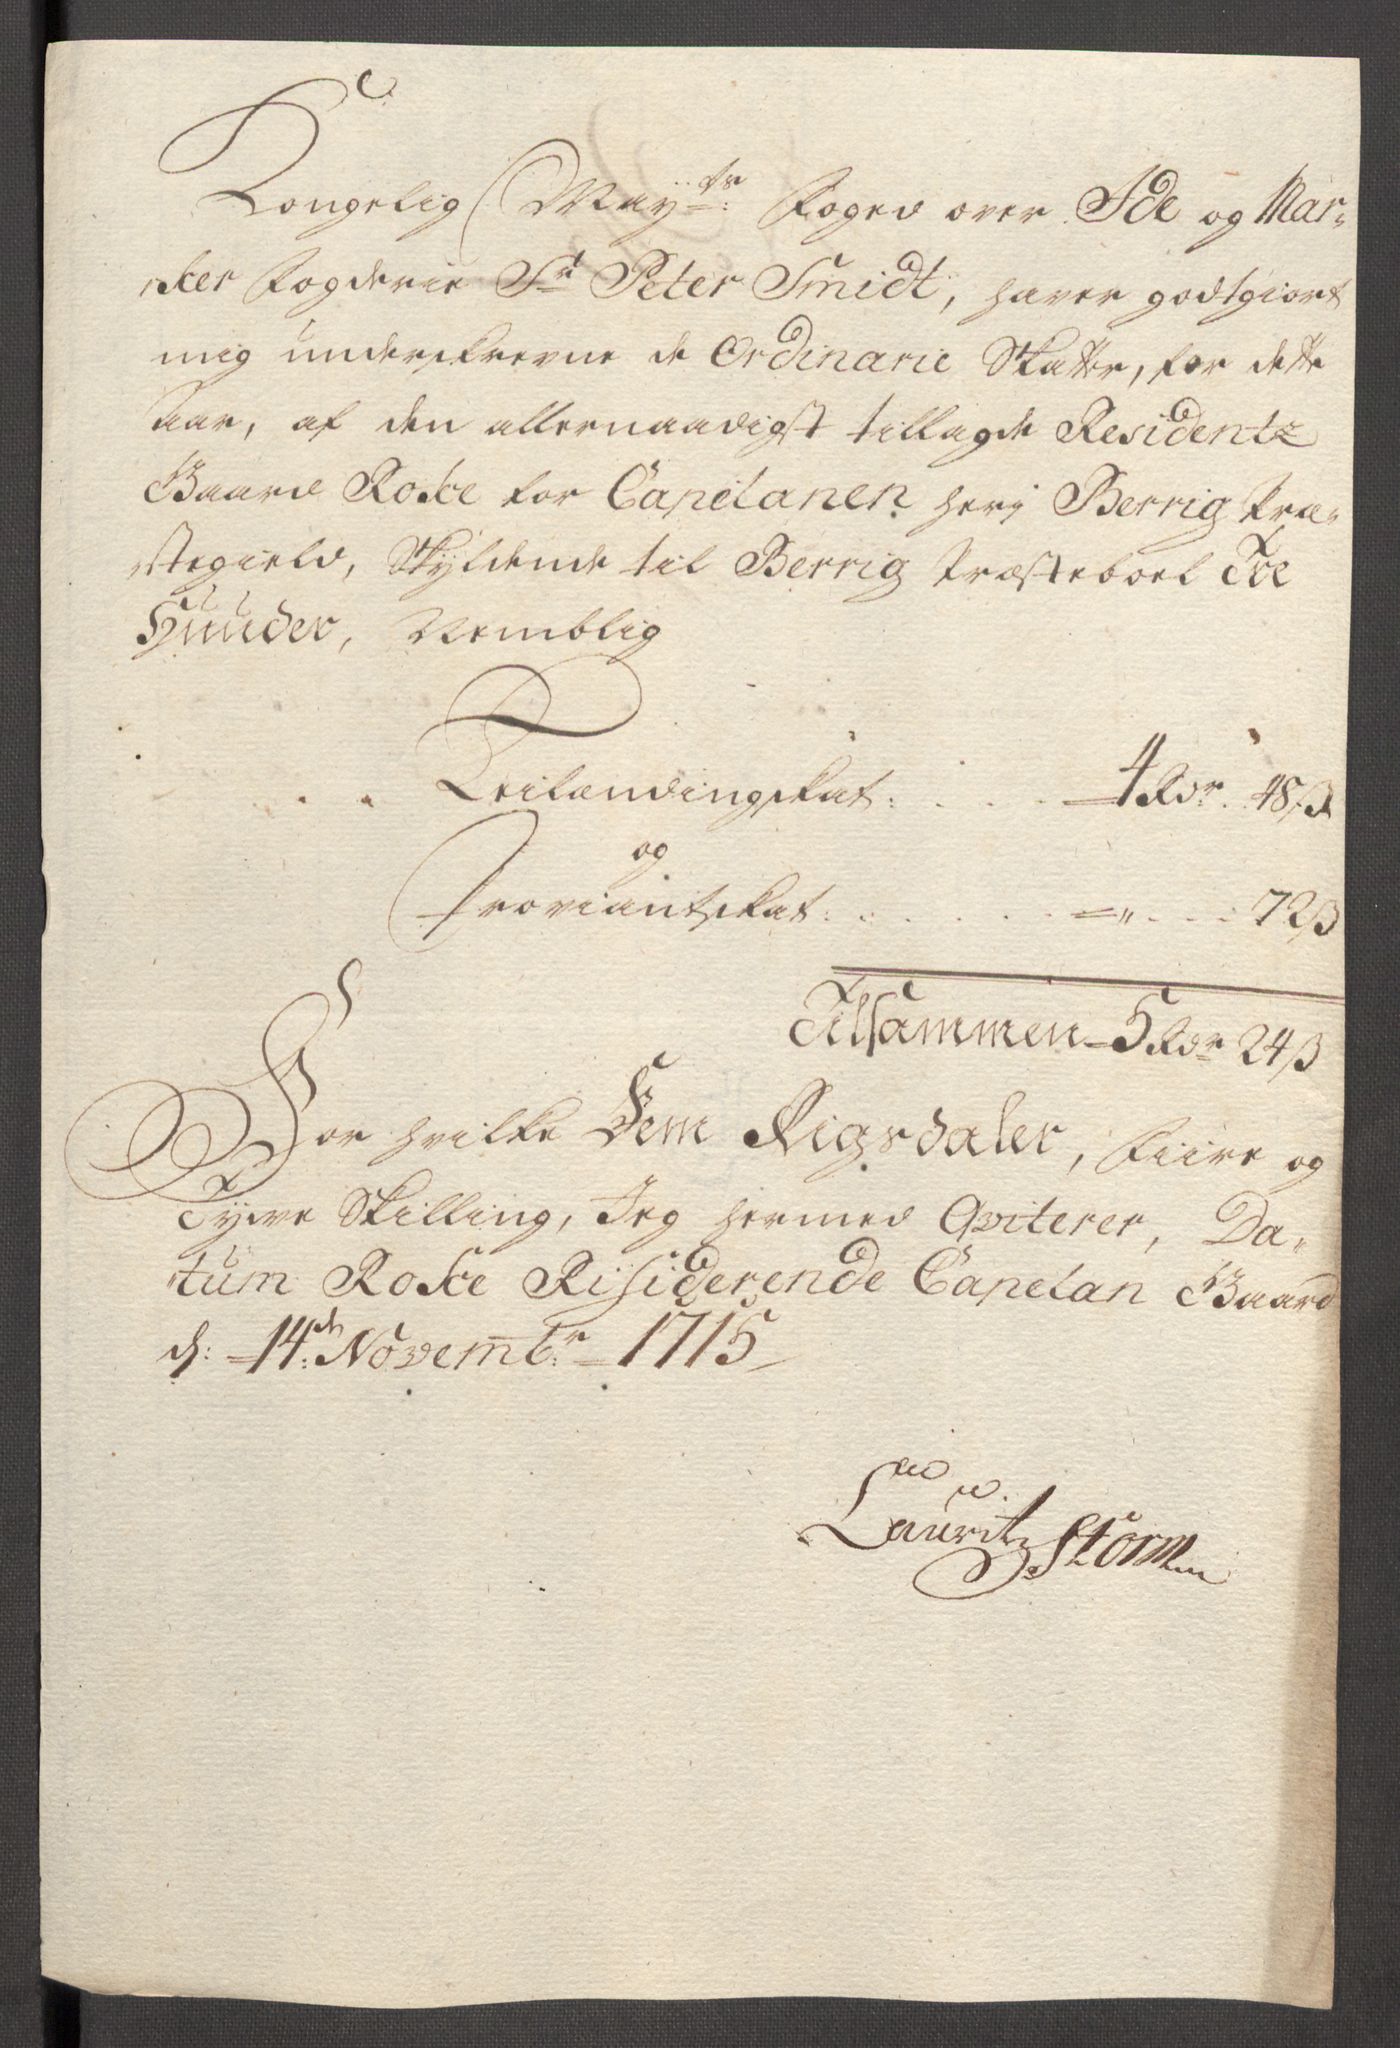 Kongelig Mayts: Foged over Ide og Mar-
ker Fogderie Sr Peter Smidt, haver godtgiort
mig underskrevne de Ordinarie Skatter, for dette
Aar, af den allernaadigst tillagde Residentz
Gaard Rokke for Capelanen her i Berrig Præ-
stegield, Skyldende til Berrig Præsteboel Tre
Huuder, Nemblig
Leilændingskat: . . . . 4 Rdr. 48 ß
og
Proviantskat: . . . . . . =„ . . . 72 ß
Tilsammen 5 Rdr 24 ß
For hvilke Fem Rigsdaler, Fiire og
Tyve Skilling, Jeg hermed Qviterer, Da-
tum Rokke Residerende Capelan Gaard
d: 14de: Novembr: 1715
Lauritz Storm